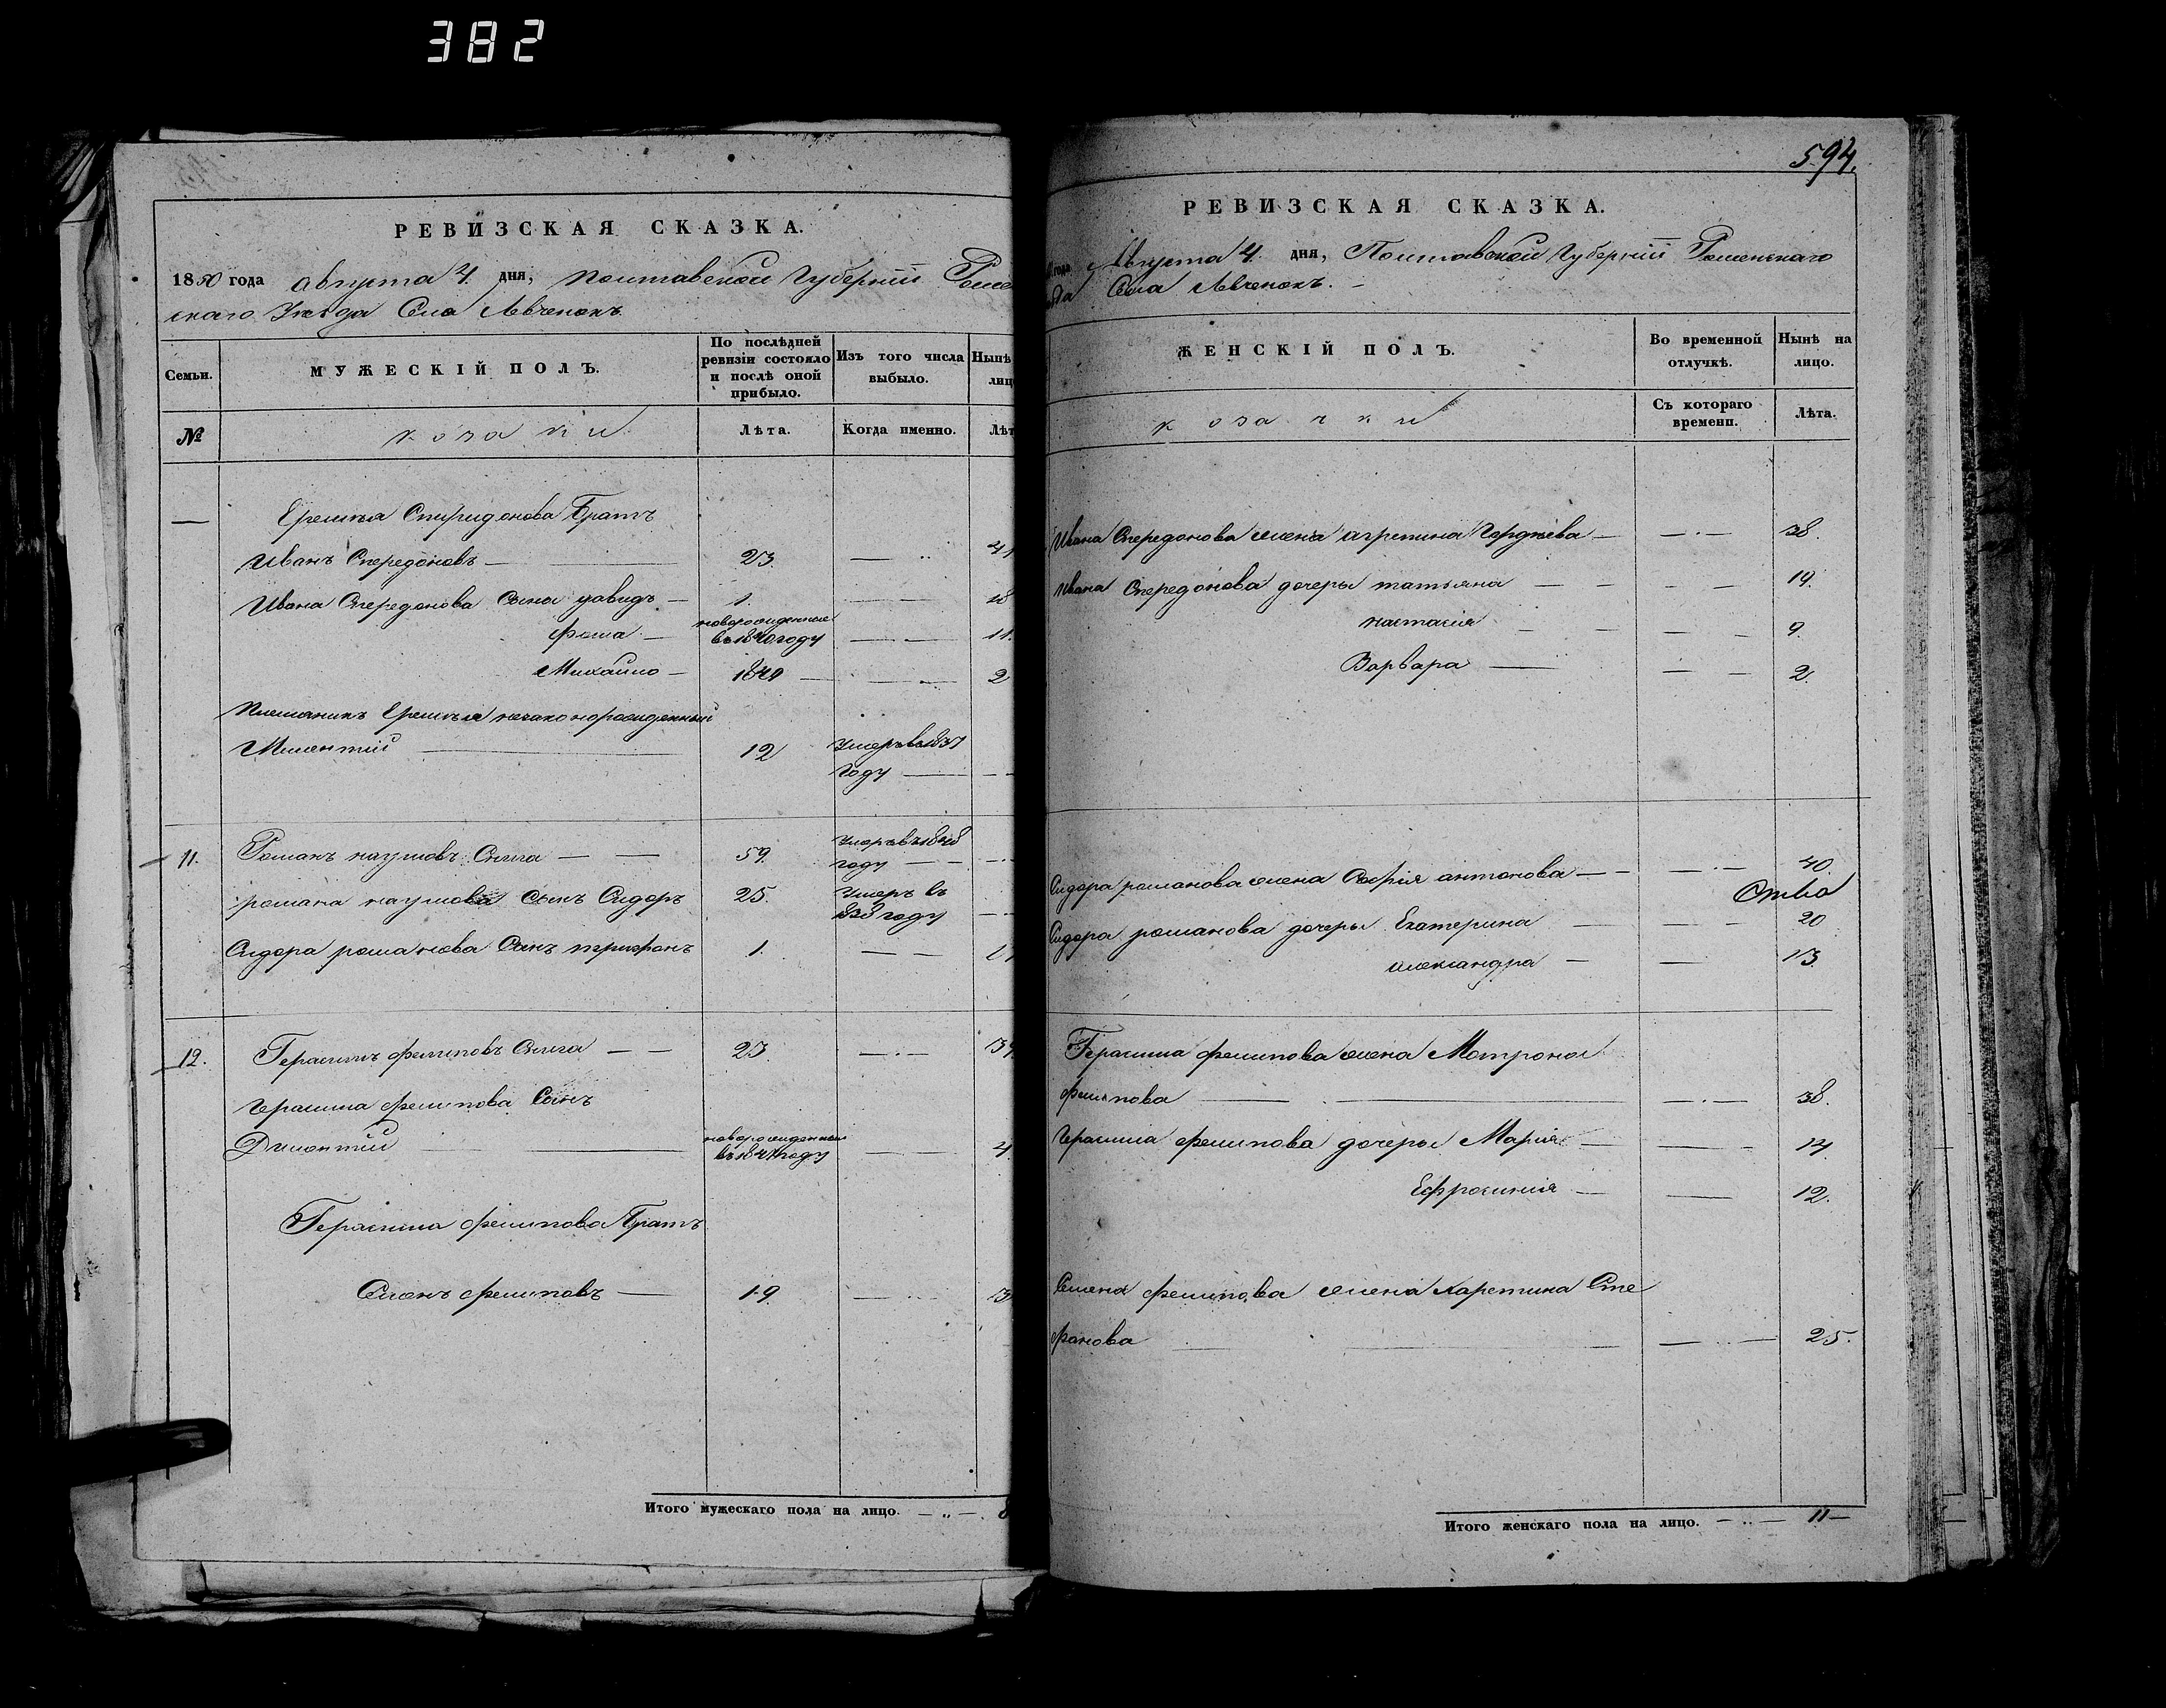 382
РЕВИЗСКАЯ СКАЗКА.
1850 года августа 4. дня, Полтавской Губернiи Роме
скаго Уѣзда Села Левченокъ
Семьи.
МУЖЕСКIЙ ПОЛЪ.
По послѣдней ревизiи состояло и послѣ оной прибыло.
Изъ того числа выбыло.
Нынѣ
лиц
№
козаки
Лѣта.
Когда именно.
Лѣт
— Еремѣя Спиридонова Братъ
Иванъ Спередоновъ — 23. — 41
Ивана Спередонова Сыны Давидъ — 1. — 18
новорожденные
Фома — въ 1840 году — 11.
Михайло — 1849 — 2
Племяникъ Еремѣя незаконорожденный
Мелентiй — 12 Умеръ въ 1837
году —
11. Романъ Наумовъ — 59. Умеръ въ 1848
году —
романа наумова сынъ Сидоръ 25. Умеръ въ
году —
Сидора романова Сынъ трифонъ 1. —
12. Герасимъ филиповъ — 23. — 39.
Герасима филипова Сынъ
новорожденный
въ 1847 году — 4.
Герасима филипова Братъ
Семенъ филиповъ — 19. —
Итого мужескаго пола на лицо. — 8
594.
РЕВИЗСКАЯ СКАЗКА.
года Августа 4. дня, Полтавской Губернiи Роменскаго
Села Левченокъ. —
ЖЕНСКIЙ ПОЛЪ.
Во временной отлучкѣ.
Нынѣ на лицо.
козачки
Съ котораго времени.
Лѣта.
Ивана Спередонова жена агрепина Гордѣева — 38.
Ивана Спередонова дочеры татьяна — 19.
настасiя — 9.
Варвара — 2.
Сидора романова жена Софiя антонова — 40.
Сидора романова дочеры Екатерина — 20
александра — 13.
Герасима филипова жена Матрона
филипова — 38.
Герасима филипова дочеры Марiя — 14.
Ефросинiя — 12.
Семена филипова жена Харетина Сте
фанова — 25.
Итого женскаго пола на лицо. — 11 —